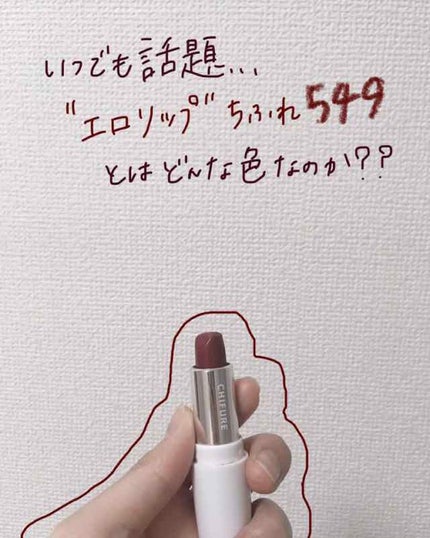 いつでも話題...
"エロリップ" ちふれ549
とはどんな色なのか??
CHIFURE